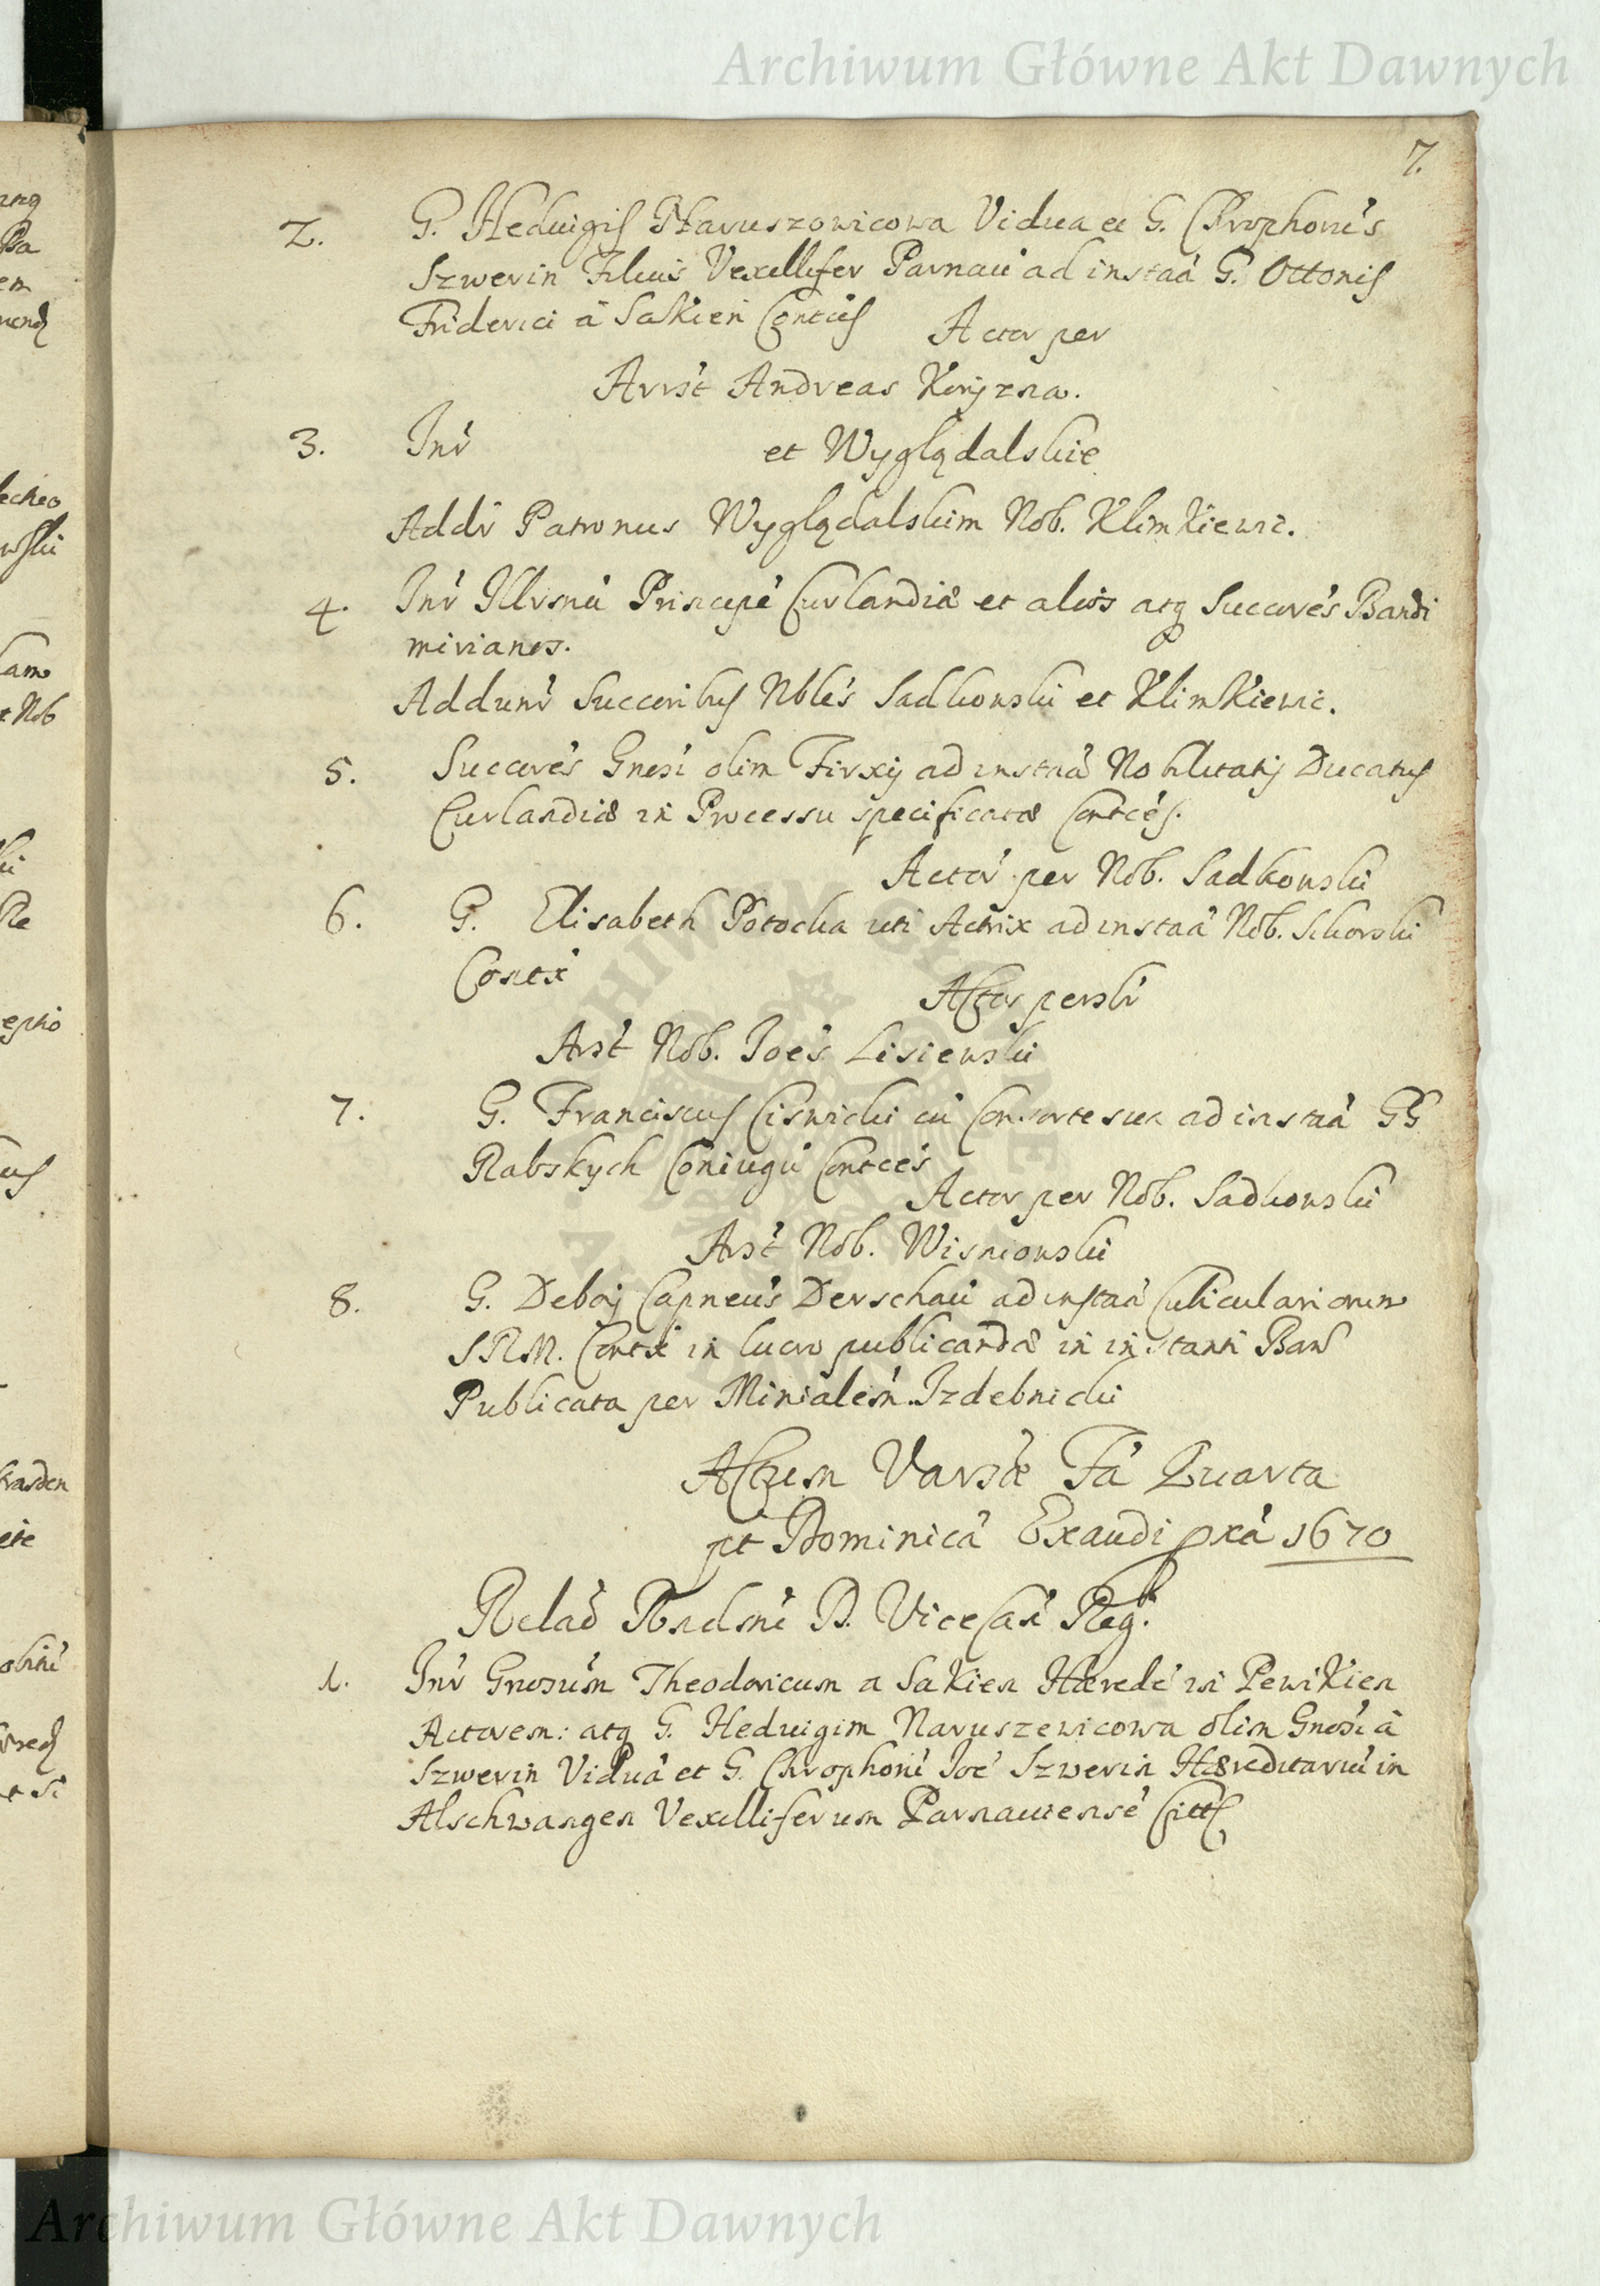 Archiwum Główne Akt Dawnych
7.
2. G. Heduigis Naruszowicowa Vidua et G. Chrophorus
Szwerin Filius Vexillifer Parnau ad instaā G. Ottonis
Friderici à Sakien Contūs Actor per
Arrst Andreas Koryzna.
3. Inr et Wyglądalskie
Addr Patronus Wyglądalskim Nob. Klimkiewic.
4. Inr Illrsnū Principē Curlandiæ et alios atq Succorēs Bandi
mirianos.
Addunr Succoribus Nblēs Sadkowski et Klimkiewic.
5. Succorēs Gnosi olim Firxij ad instaā Nobilitatis Ducatus
Curlandiæ in Processu specificatæ Contcēs.
Actor per Nob. Sadkowski
6. G. Elisabeth Potocka uti Actrix ad instaā Nob. Sikorski
Contx
Actor perslr
Arst Nob. Joēs Lisiewski
7. G. Franciscus Ciswicki cū Consorte sua ad instaā GG
Rabskych Coniugū Contcēs
Actor per Nob. Sadkowski
Arst Nob. Wisniowski
8. G. Deboj Capneus Derschau ad instaā Cubiculariorum
SRM. Contx in lucro publicandæ in instanti Ban
Publicata per Minialem Izdebnicki
Actum Varsæ Fā Quarta
pt Dominicā Exaudi pxā 1670
Relaō Rndmi D. ViceCan Reg.
1. Inr Gnosum Theodoricum a Sakien Hæredē in Pewikien
Actorem: atq G. Heduigim Naruszewicowa olim Gnosi à
Szwerin Viduā et G. Chrophorū Joē Szwerin Hæreditariū in
Alschwangen Vexilliferum Parnauiensē Citt
Archiwum Główne Akt Dawnych